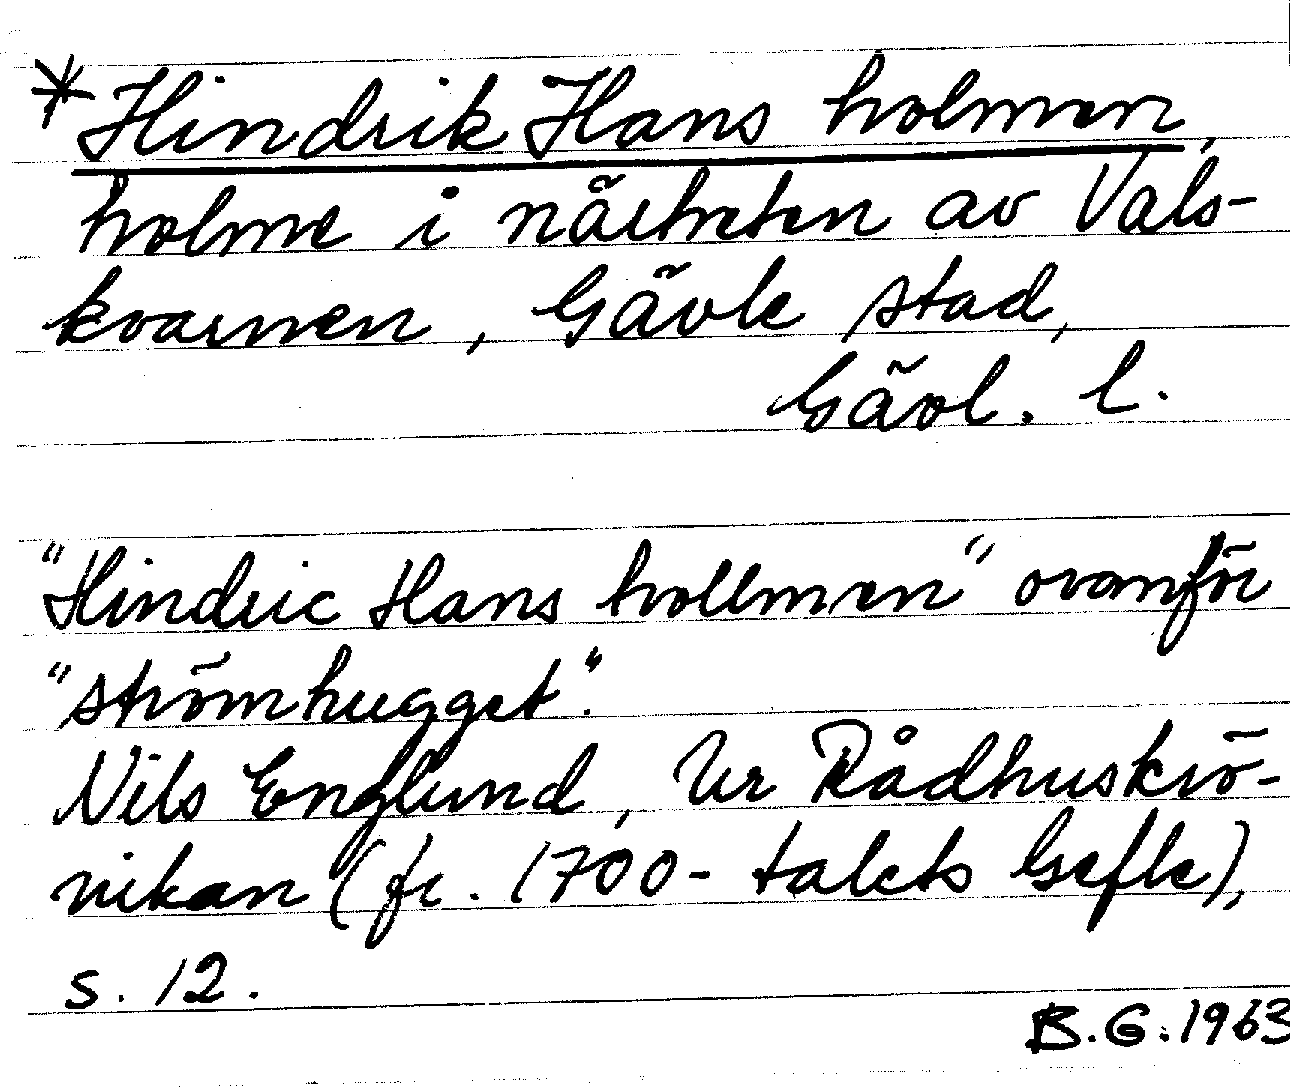 *Hindrik Hans holmen,
holme i närheten av Vals-
kvarnen, Gävle stad,
Gävl. l.
"Hindric Hans hollmen" ovanför
"strömhugget".
Nils Englund, Ur Rådhuskrö-
nikan (fr. 1700-talets Gefle),
s. 12.
B.G. 1963